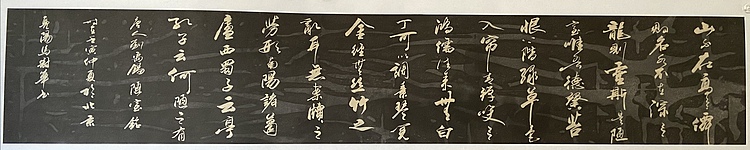 山不在高有僊
則名水不在深有
龍則靈斯是陋
室惟吾德馨苔
痕上階緑草色
入帘青談笑有
鴻儒往来無白
丁可以調素琴閲
金經無絲竹之
亂耳無案牘之
勞形南陽諸葛
廬西蜀子云亭
孔子云何陋之有
唐人劉禹錫陋室銘
壬寅仲夏於北京
陽馬書